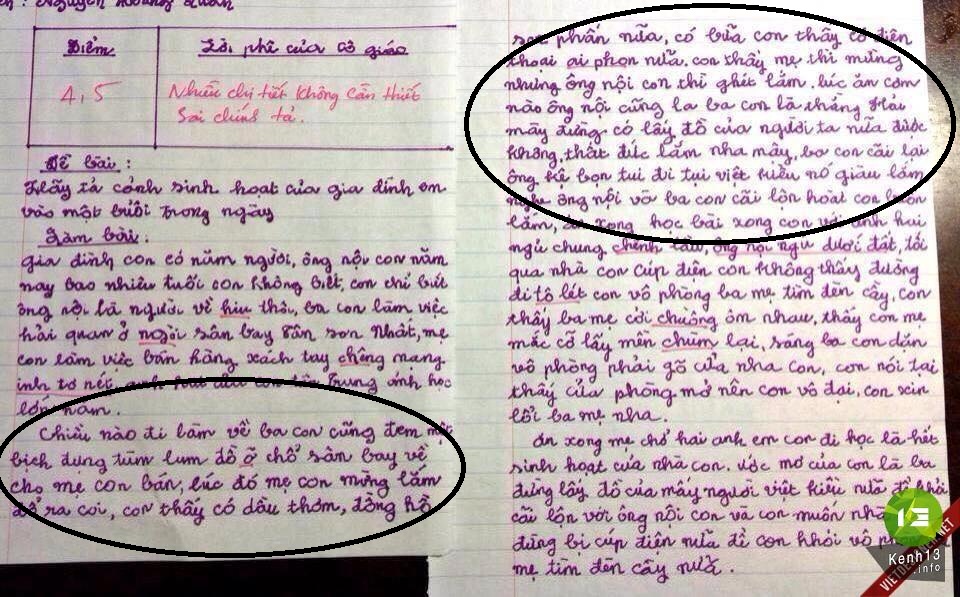 : Nguyễn Hoàng Quân
Điểm
Lời phê của cô giáo
4,5
Nhiều chi tiết không cần thiết
Sai chính tả.
Đề bài :
Hãy tả cảnh sinh hoạt của gia đình em
vào một buổi trong ngày
Làm bài :
gia đình con có năm người, ông nội con năm
nay bao nhiêu tuổi con không biết, con chỉ biết
ông nội là người về hiu thôi, ba con làm việc
hải quan ở ngoài sân bay tân sơn nhất, mẹ
con làm việc bán hàng xách tay chêng mạng
inh tơ nét, anh hai trung anh học
lớp năm.
Chiều nào đi làm về ba con cũng đem một
bịch đựng tùm lum đồ ở chổ sân bay về
cho mẹ con bán, lúc đó mẹ con mừng lắm
đổ ra coi, con thấy có dầu thơm, đồng hồ
son phấn nữa, có bữa con thấy có điện
thoại ai phon nữa, con thấy mẹ thì mừng
nhưng ông nội con thì ghét lắm. lúc ăn cơm
nào ông nội cũng la ba con là thằng Hải
mày đừng có lấy đồ của người ta nữa được
không, thất đức lắm nha mày, ba con cãi lại
ông kệ bọn tui đi tụi việt kiều nó giàu lắm
ông nội vỡ ba con cãi lộn hoài con buồn
lắm, ăn xong học bài xong con với anh hai
ngủ chung chênh lầu, ông nội ngủ dưới đất, tối
qua nhà con cúp điện con không thấy đường
đi tô lét con vô phòng ba mẹ tìm đèn cầy, con
thấy ba mẹ cởi chuồng ôm nhau, thấy con mẹ
mắc cỡ lấy mền chùm lại, sáng ba con dặn
vô phòng phải gõ cửa nha con, con nói tại
thấy cửa phòng mở nên con vô đại, con xin
lỗi ba mẹ nha.
Ăn xong mẹ chở hai anh em con đi học là hết
sinh hoạt của nhà con. ước mơ của con là ba
đừng lấy đồ của mấy người việt kiều nữa để khỏi
cãi lộn với ông nội con và con muốn nhà
đừng bị cúp điện nữa để con khỏi vô
mẹ tìm đèn cầy nữa.
Kenh13
.info